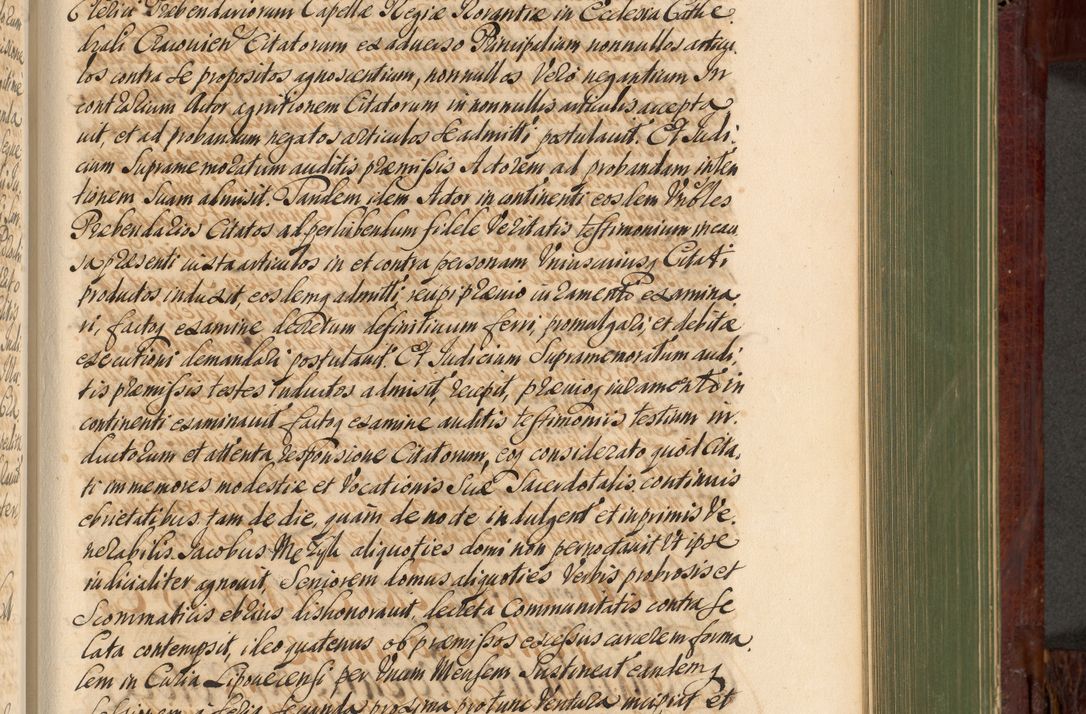 Clerici Præbendariorum Capellæ Regiæ Rorantiæ in Ecclesia Cathe,
drali Cracovien Citatorum ex adverso Principalium nonnullos articu
los contra se propositos agnoscentium, nonnullos Vero negantium In
contrarium Actor agnitionem Citatorum in nonnullis articulis accepta
vit, et ad probandum negatos articulos se admitti postulavit. Et Judi,
cium Supramemoratum auditis præmissis Actorem ad probandam inten
tionem Suam admisit. Tandem idem Actor in continenti eosdem Vnbles
Præbendarios Citatos ad perhibendum fidele Veritatis testimonium in cau
sa præsenti iuxta articulos in et contra personam Vniuscuiusq Citati
productos induxit eosdemq admitti, recipi prævio iuramento examina,
ri, factoq examine decretum definitivum ferri, promulgari et debitæ
executioni demandari postulavit. Et Judicium Supramemoratum audi,
tis præmissis testes inductos admisit, recepit, prævioq iuramento in
continenti examinavit factoq examine auditis testimoniis testium in,
ductorum et attenta responsione Citatorum, eoq considerato quod Cita,
ti immemores modestiæ et Vocationis Suæ Sacerdotalis continuis
ebrietatibus tam de die, quam de nocte indulgent et inprimis Ve,
nerabilis Jacobus aliquoties domi non pernoctavit Vt ipse
iudicialiter agnovit, Seniorem domus aliquoties Verbis probrosis et
Scommaticis ebrius dishonoravit, decreta Communitatis contra se
lata contempsit, ideo quatenus ob præmissos excessus carcerem forma,
lem in Curia Lipovecensi per Vnum Mensem Sustineat eandemq
a feria secunda proxima protunc Ventura incipiat et